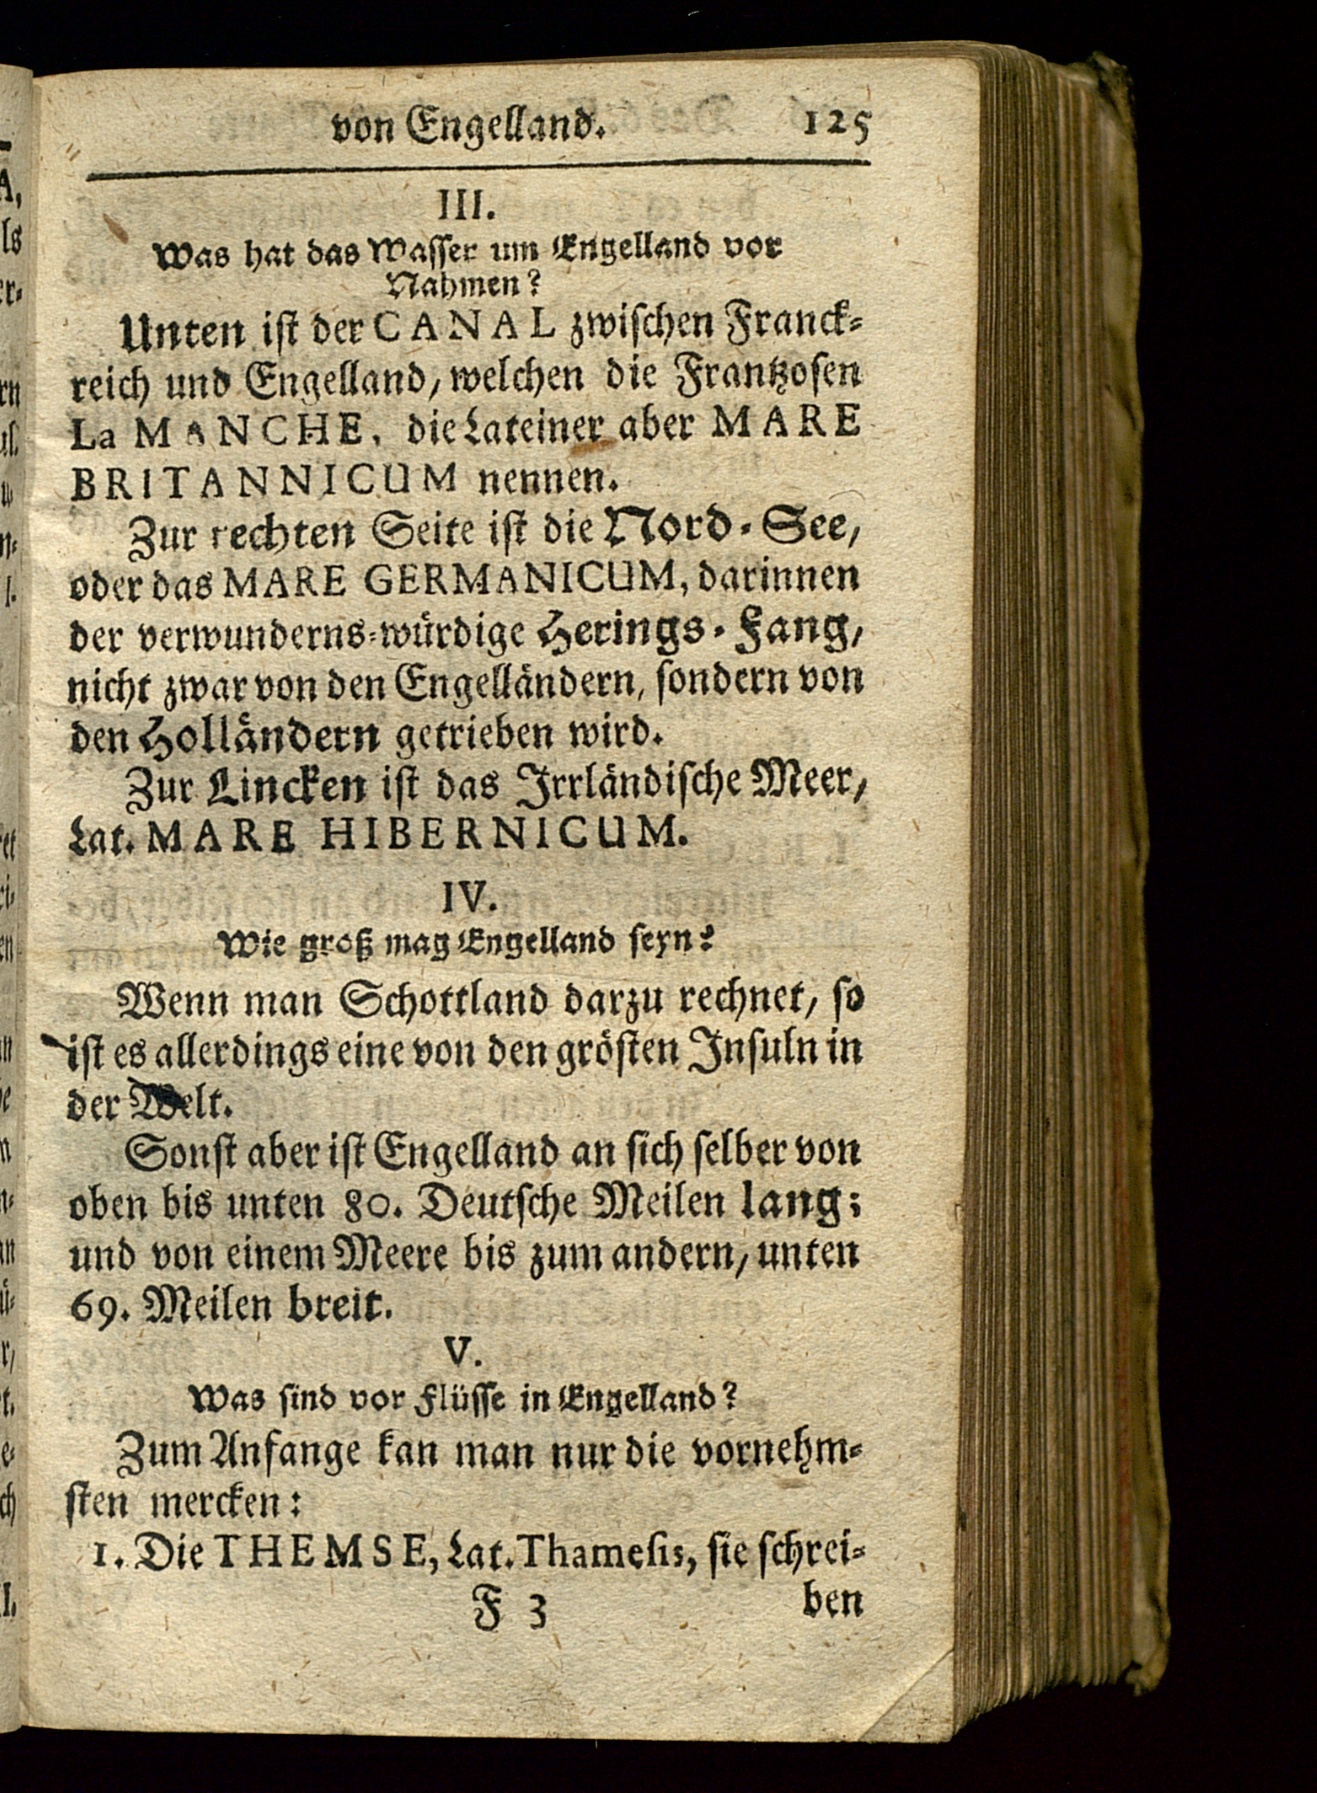 von Engelland. 125
III.
Was hat das Wasser um Engelland vor
Nahmen?
Unten ist der CANAL zwischen Franck-
reich und Engelland, welchen die Frantzosen
La MANCHE, die Lateiner aber MARE
BRITANNICUM nennen.
Zur rechten Seite ist die Nord-See,
oder das MARE GERMANICUM, darinnen
der verwunderns-würdige Herings-Fang,
nicht zwar von den Engelländern, sondern von
den Holländern getrieben wird.
Zur Lincken ist das Irrländische Meer,
Lat. MARE HIBERNICUM.
IV.
Wie groß mag Engelland seyn?
Wenn man Schottland darzu rechnet, so
ist es allerdings eine von den grösten Insuln in
der Welt.
Sonst aber ist Engelland an sich selber von
oben bis unten 80. Deutsche Meilen lang;
und von einem Meere bis zum andern, unten
69. Meilen breit.
V.
Was sind vor Flüsse in Engelland?
Zum Anfange kan man nur die vornehm-
sten mercken:
1. Die THEMSE, Lat. Thamesis, sie schrei-
F 3 ben